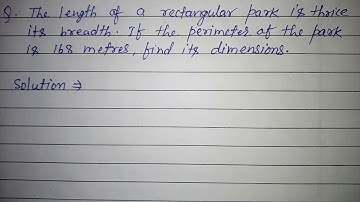 Q. The length of a rectangular park is thrice
its breadth. If the perimeter of the park
is 168 metres, find its dimensions.
Solution ⇒